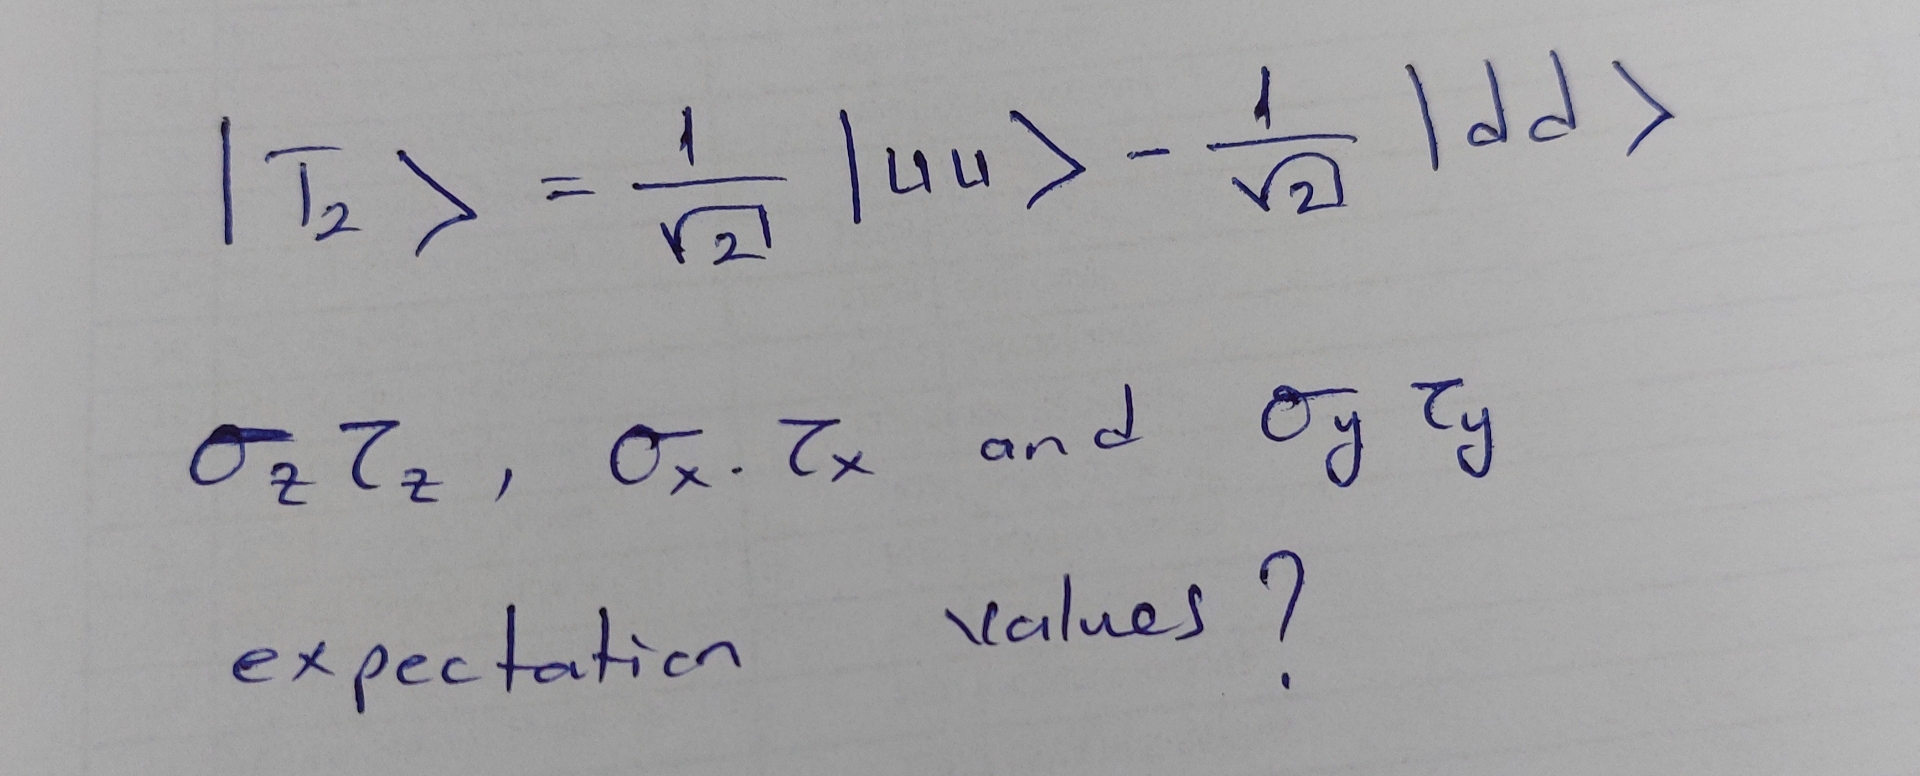 |T₂> = 1/√2 |uu> - 1/√2 |dd>
σz τz, σx . τx and σy τy
expectation values ?